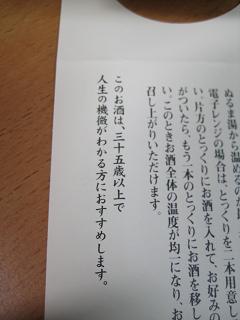 ぬるま湯から温めるのが
電子レンジの場合は、とっくりを二本用意し
い、片方のとっくりにお酒を入れて、お好みの
がついたら、もう一本のとっくりにお酒を移し
い。このときお酒全体の温度が均一になり、お
召し上がりいただけます。
このお酒は、三十五歳以上で
人生の機微がわかる方におすすめします。